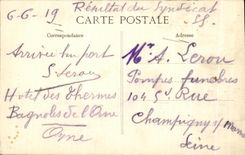 6-6-19 Résultat du Syndicat
CARTE POSTALE
Correspondance
Adresse
Arrivée bu port
Mr A. Lerou
Pompes funebres
Hotel des Thermes
104 Gd Rue
Bagnoles de l'Orne
Champigny s/ Marne
Orne
Seine